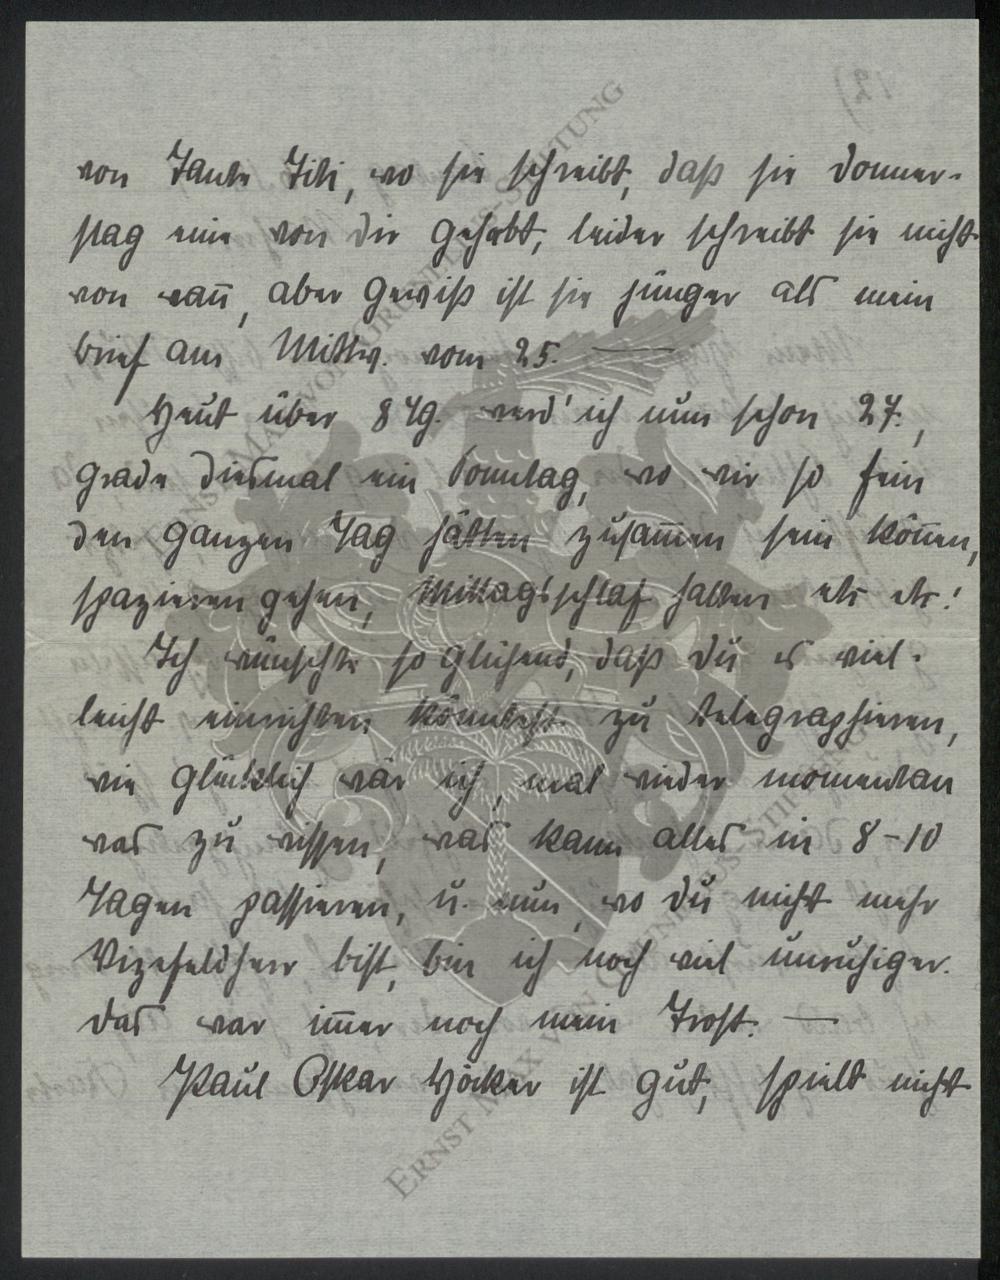 von Tante Titi, wo sie schreibt, daß sie Donner-
stag eine von dir gehabt, leider schreibt sie nicht
von wañ, aber gewiß ist sie jünger als mein
brief am Mittw. vom 25. —
Heut über 8 Tg. werd' ich nun schon 27.,
grade diesmal ein Sonntag, wo wir so fein
den ganzen Tag hätten zusam̄en sein kön̄en,
spazieren gehen, Mittagsschlaf halten etc etc!
Ich wünschte so glühend, daß du es viel-
leicht einrichten könntest zu telegraphieren,
wie glücklich wär ich, mal wieder momentan
was zu wissen, was kann alles in 8-10
Tagen passieren, u. nun, wo du nicht mehr
Vizefeldherr bist, bin ich noch viel unruhiger.
das war im̄er noch mein Trost. —
Paul Oskar Höcker ist gut, spielt nicht
12)
ERNST MAX VON GRUNELIUS-STIFTUNG
ERNST MAX VON GRUNELIUS-STIFTUNG